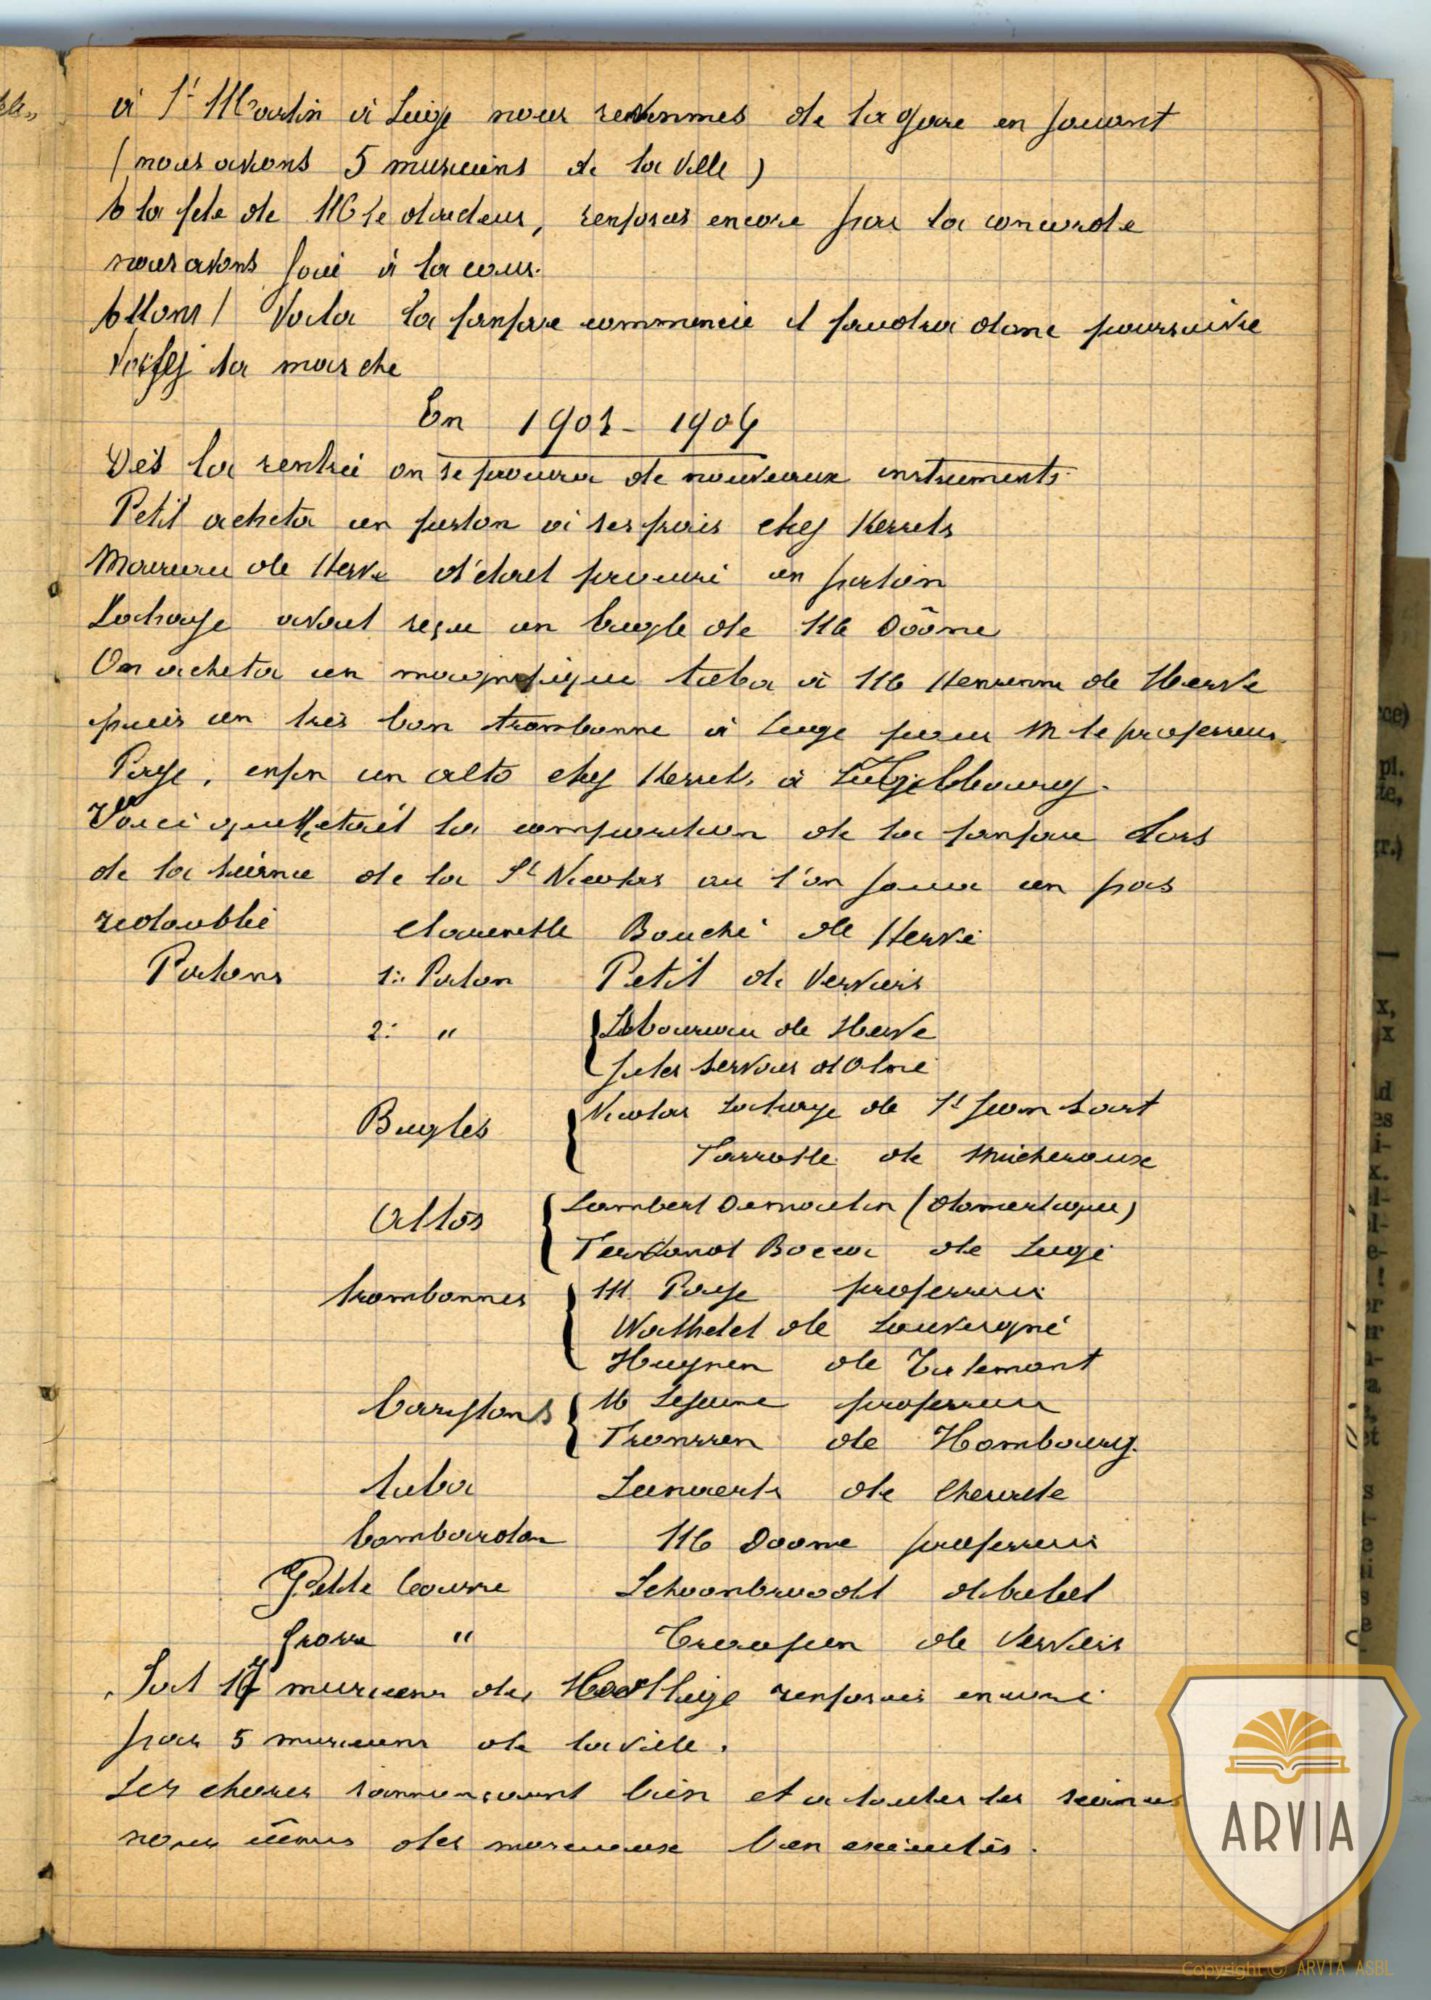 à St Martin à Liège nous revînmes de la gare en jouant
(nous avions 5 musiciens de la ville)
A la fête de M le directeur, renforcés encore par la concorde
nous avons joué à la cour.
Allons! Voila la fanfare commencée il faudra donc poursuivre
la marche
En 1903-1904
Dès la rentrée on se procura de nouveaux instruments.
Petit acheta un piston à ses frais chez Kerrels
de Herve s'était procuré un piston
Lahaye avait reçu un bugle de M Doôme
On acheta un magnifique tuba à M Henrienne de Herve
puis un très bon trombonne à Liège pour M le professeur
Paye, enfin un alto chez Kerrels à
Voici quelle était la composition de la fanfare lors
de la séance de la St Nicolas ou l'on joua un pas
redoublé clarinette Bouché de Herve
Pistons 1: Piston Petit de Verviers
2: " de Herve
Jules Servais d'Olne
Bugles Nicolas Lahaye de St Jean Sart
Tarrotte de Micheroux
Altos Lambert Demoulin (domestique)
Fernand de Liège
trombonnes M Paye professeur
Wathelet de Louveigné
Huynen de Tirlemont
barytons M Lejeune professeur
Franssen de Hombourg
tuba Lenaerts de Cheratte
bombardon M Doome professeur
Petite caisse Schoonbroodt
grosse " de Verviers
Soit 17 musiciens des renforcés encore
par 5 musiciens de la ville.
Les choses bien et à toutes les séances
nous eûmes des morceaux bien exécutés.
ARVIA
Copyright © ARVIA ASBL